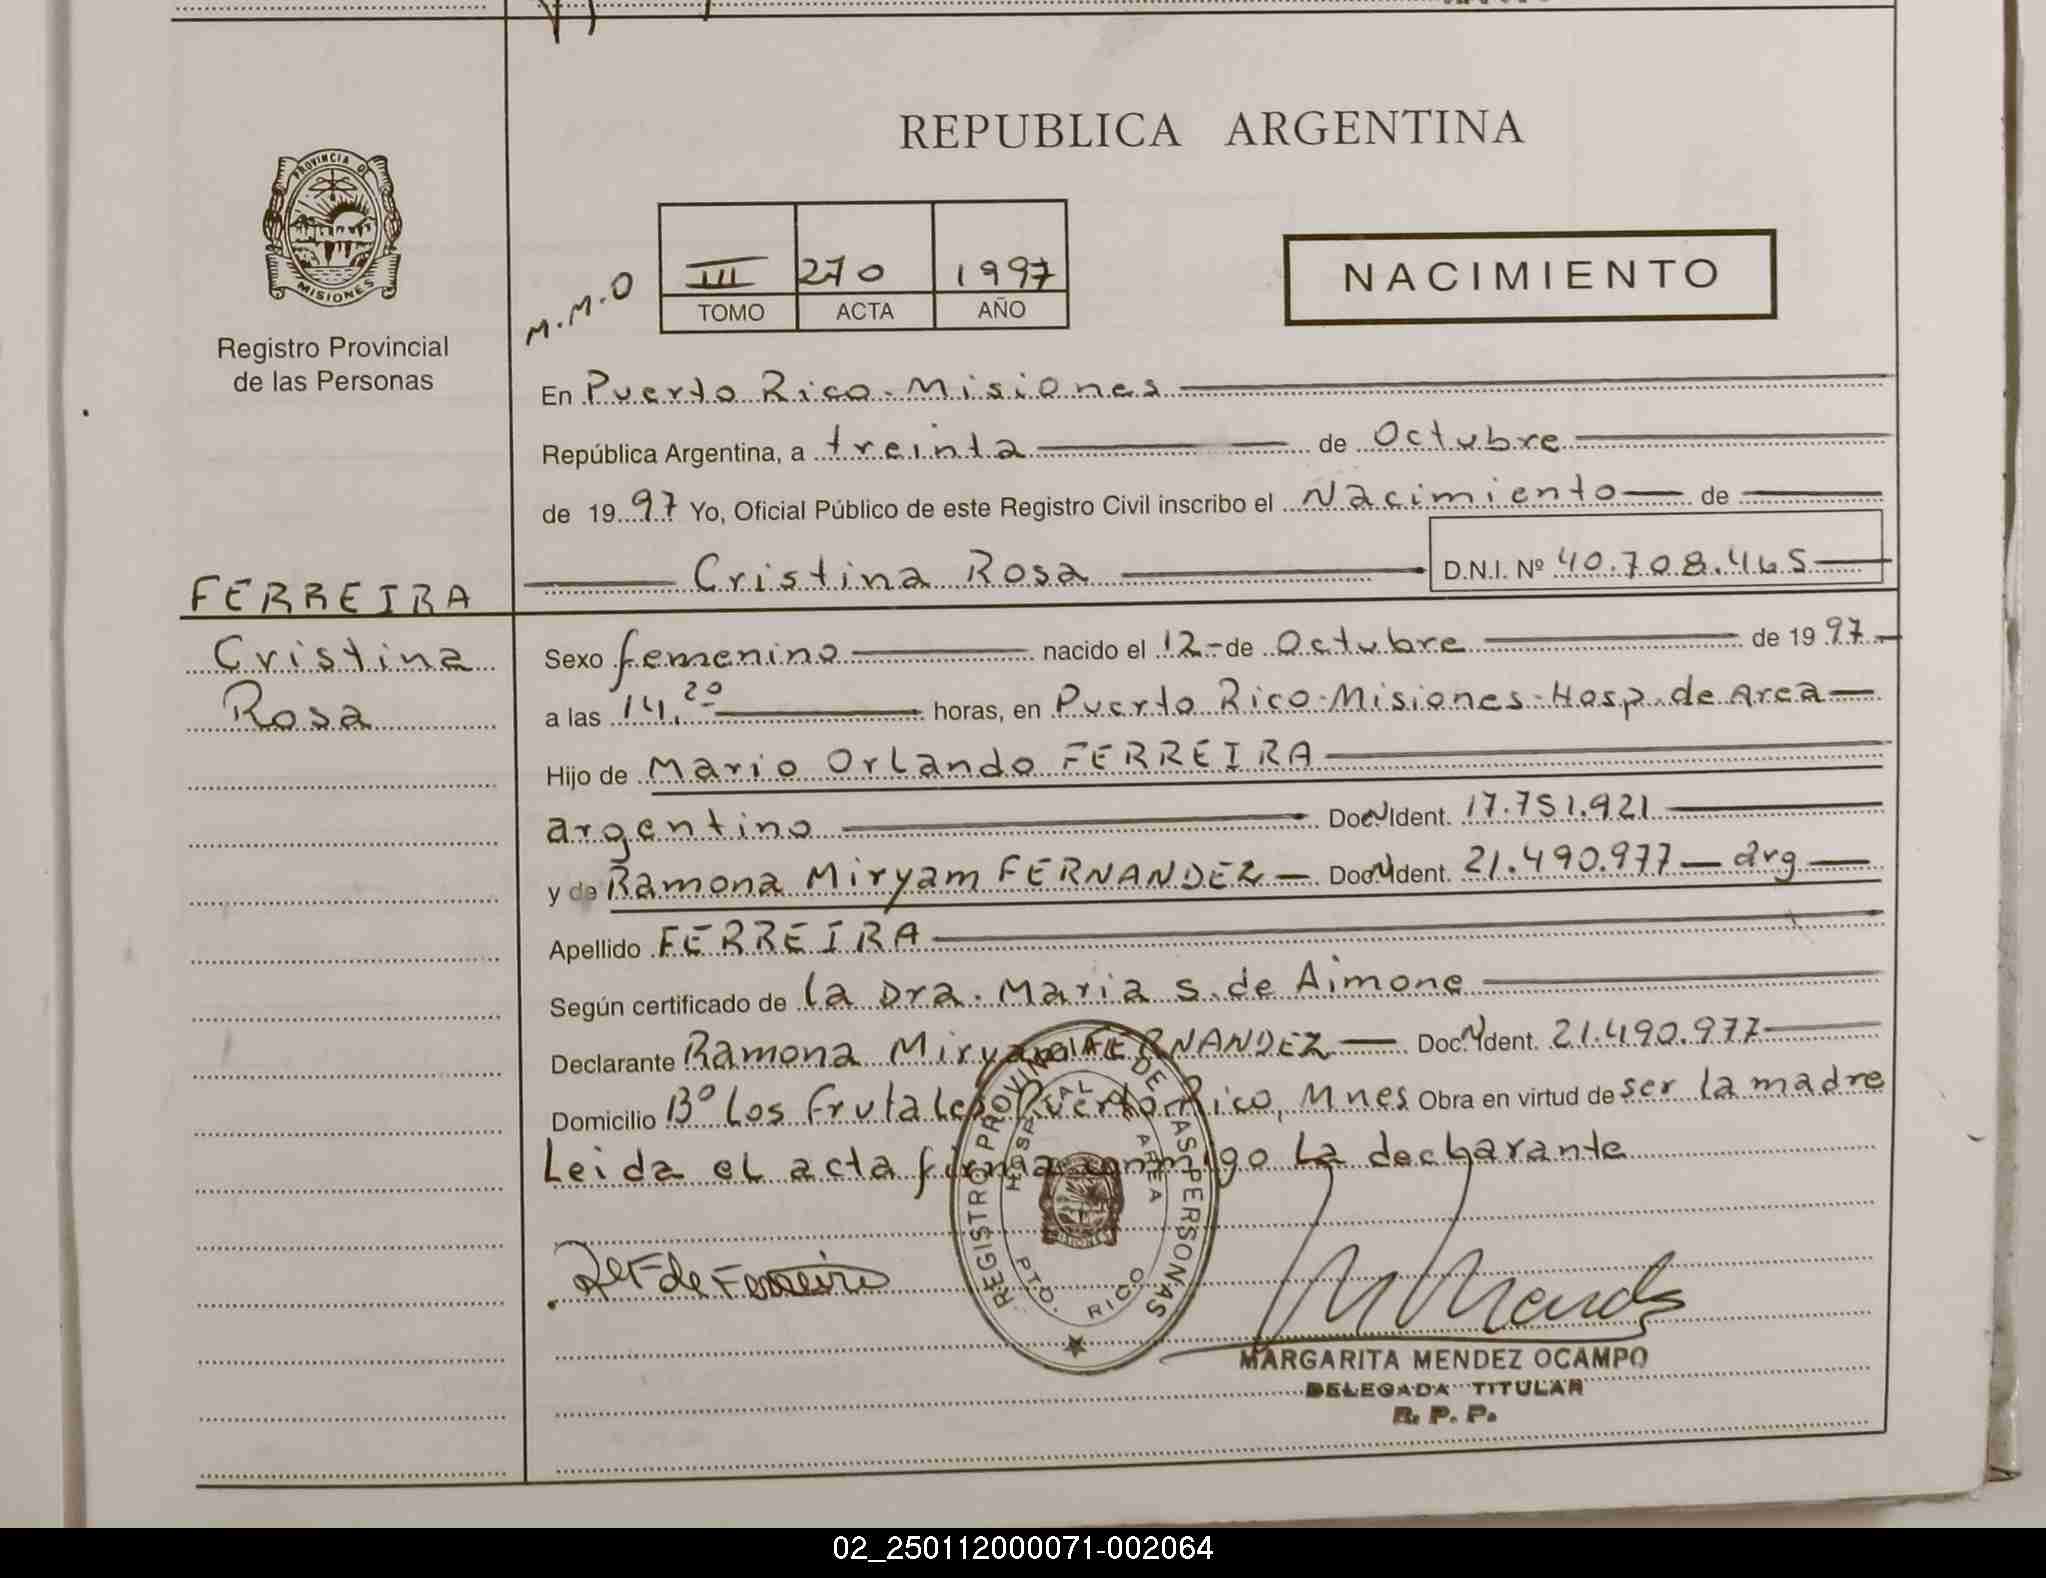 REPUBLICA ARGENTINA
PROVINCIA DE
MISIONES
Registro Provincial
de las Personas
M.M.O
III 270 1997
TOMO ACTA AÑO
NACIMIENTO
En Puerto Rico - Misiones
República Argentina, a treinta de Octubre
de 1997 Yo, Oficial Público de este Registro Civil inscribo el Nacimiento de
Cristina Rosa D.N.I. Nº 40.708.465
FERREIRA
Cristina
Rosa
Sexo femenino nacido el 12 - de Octubre de 1997
a las 14,20 horas, en Puerto Rico - Misiones - Hosp. de Area
Hijo de Mario Orlando FERREIRA
argentino Doc. N Ident. 17.751.921
y de Ramona Miryam FERNANDEZ Doc. N Ident. 21.490.977 - arg
Apellido FERREIRA
Según certificado de la Dra. Maria S. de Aimone
Declarante Ramona Miryam FERNANDEZ Doc. N Ident. 21.490.977
Domicilio Bº Los Frutales Puerto Rico, Mnes Obra en virtud de ser la madre
Leida el acta firma conmigo la declarante
REGISTRO PROVINCIAL DE LAS PERSONAS
HOSPITAL DE AREA
PTO. RICO
R F de Ferreira
M Mendez
MARGARITA MENDEZ OCAMPO
DELEGADA TITULAR
R. P. P.
02_250112000071-002064